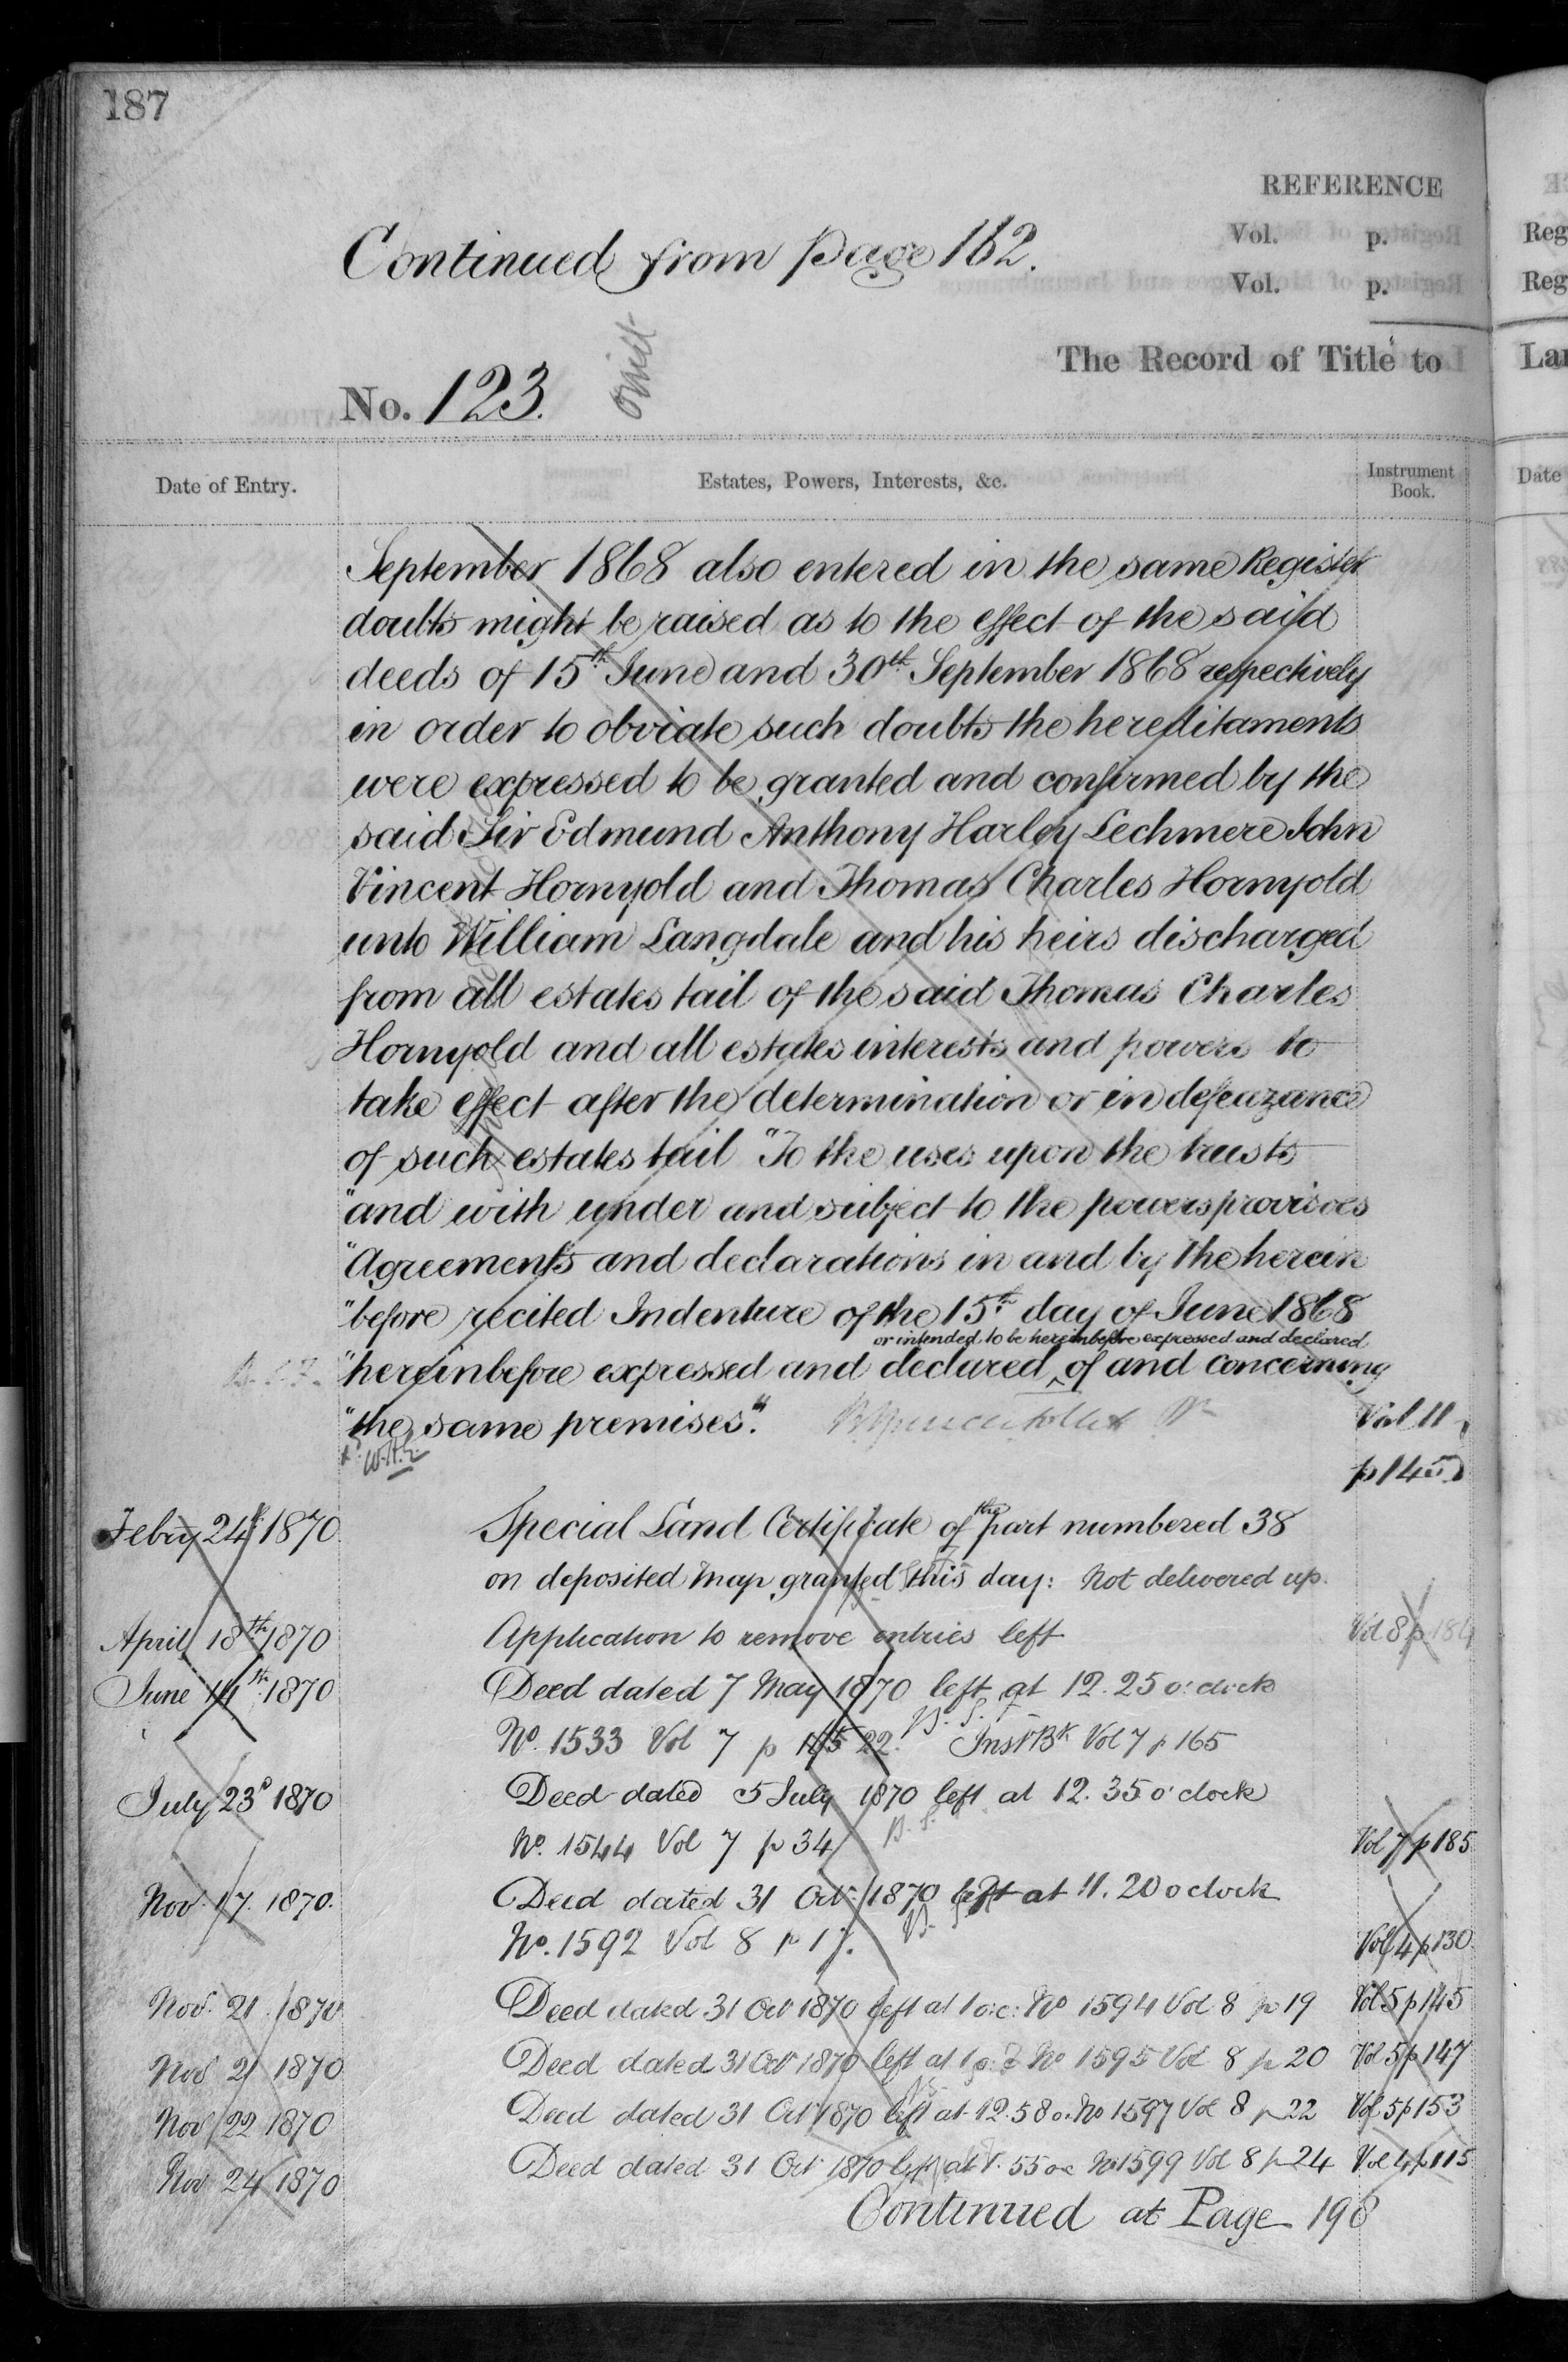 187
REFERENCE
Continued from page 162.
Vol. p.
Vol. p.
The Record of Title to
No. 123.
omit
Date of Entry.
Estates, Powers, Interests, &c.
Instrument Book.
September 1868 also entered in the same Register
doubts might be raised as to the effect of the said
deeds of 15th June and 30th September 1868 respectively
in order to obviate such doubts the hereditaments
were expressed to be granted and confirmed by the
said Sir Edmund Anthony Harley Lechmere John
Vincent Hornyold and Thomas Charles Hornyold
unto William Langdale and his heirs discharged
from all estates tail of the said Thomas Charles
Hornyold and all estates interests and powers to
take effect after the determination or in defeazance
of such estates tail "To the uses upon the trusts
"and with under and subject to the powers provisoes
"Agreements and declarations in and by the herein
"before recited Indenture of the 15th day of June 1868
or intended to be hereinbefore expressed and declared
"hereinbefore expressed and declared ‸ of and concerning
"the same premises".
Vol 11
p 145
Feby 24th 1870 Special Land Certificate of the part numbered 38
on deposited Map granted this day: Not delivered up.
April 18th 1870 Application to remove entries left Vol 8 p 184
June 14th 1870 Deed dated 7 May 1870 left at 12.25 o'clock
No. 1533 Vol 7 p 22. Inst Bk Vol 7 p 165
July 23d 1870 Deed dated 5 July 1870 left at 12.35 o'clock
No. 1544 Vol 7 p 34 Vol 7 p 185
Nov. 17. 1870. Deed dated 31 Oct. 1870 left at 11.20 o clock
No. 1592 Vol 8 p 17. Vol 4 p 130
Nov. 21. 1870 Deed dated 31 Oct 1870 left at 1 o.c: No 1594 Vol 8 p 19 Vol 5 p 145
Nov 21 1870 Deed dated 31 Oct 1870 left at 1 o.c No 1595 Vol 8 p 20 Vol 5 p 147
Nov 22 1870 Deed dated 31 Oct 1870 left at 12.58 o. No 1597 Vol 8 p 22 Vol 5 p 153
Nov 24 1870 Deed dated 31 Oct 1870 left at 1.55 oc No 1599 Vol 8 p 24 Vol 4 p 115
Continued at Page 198